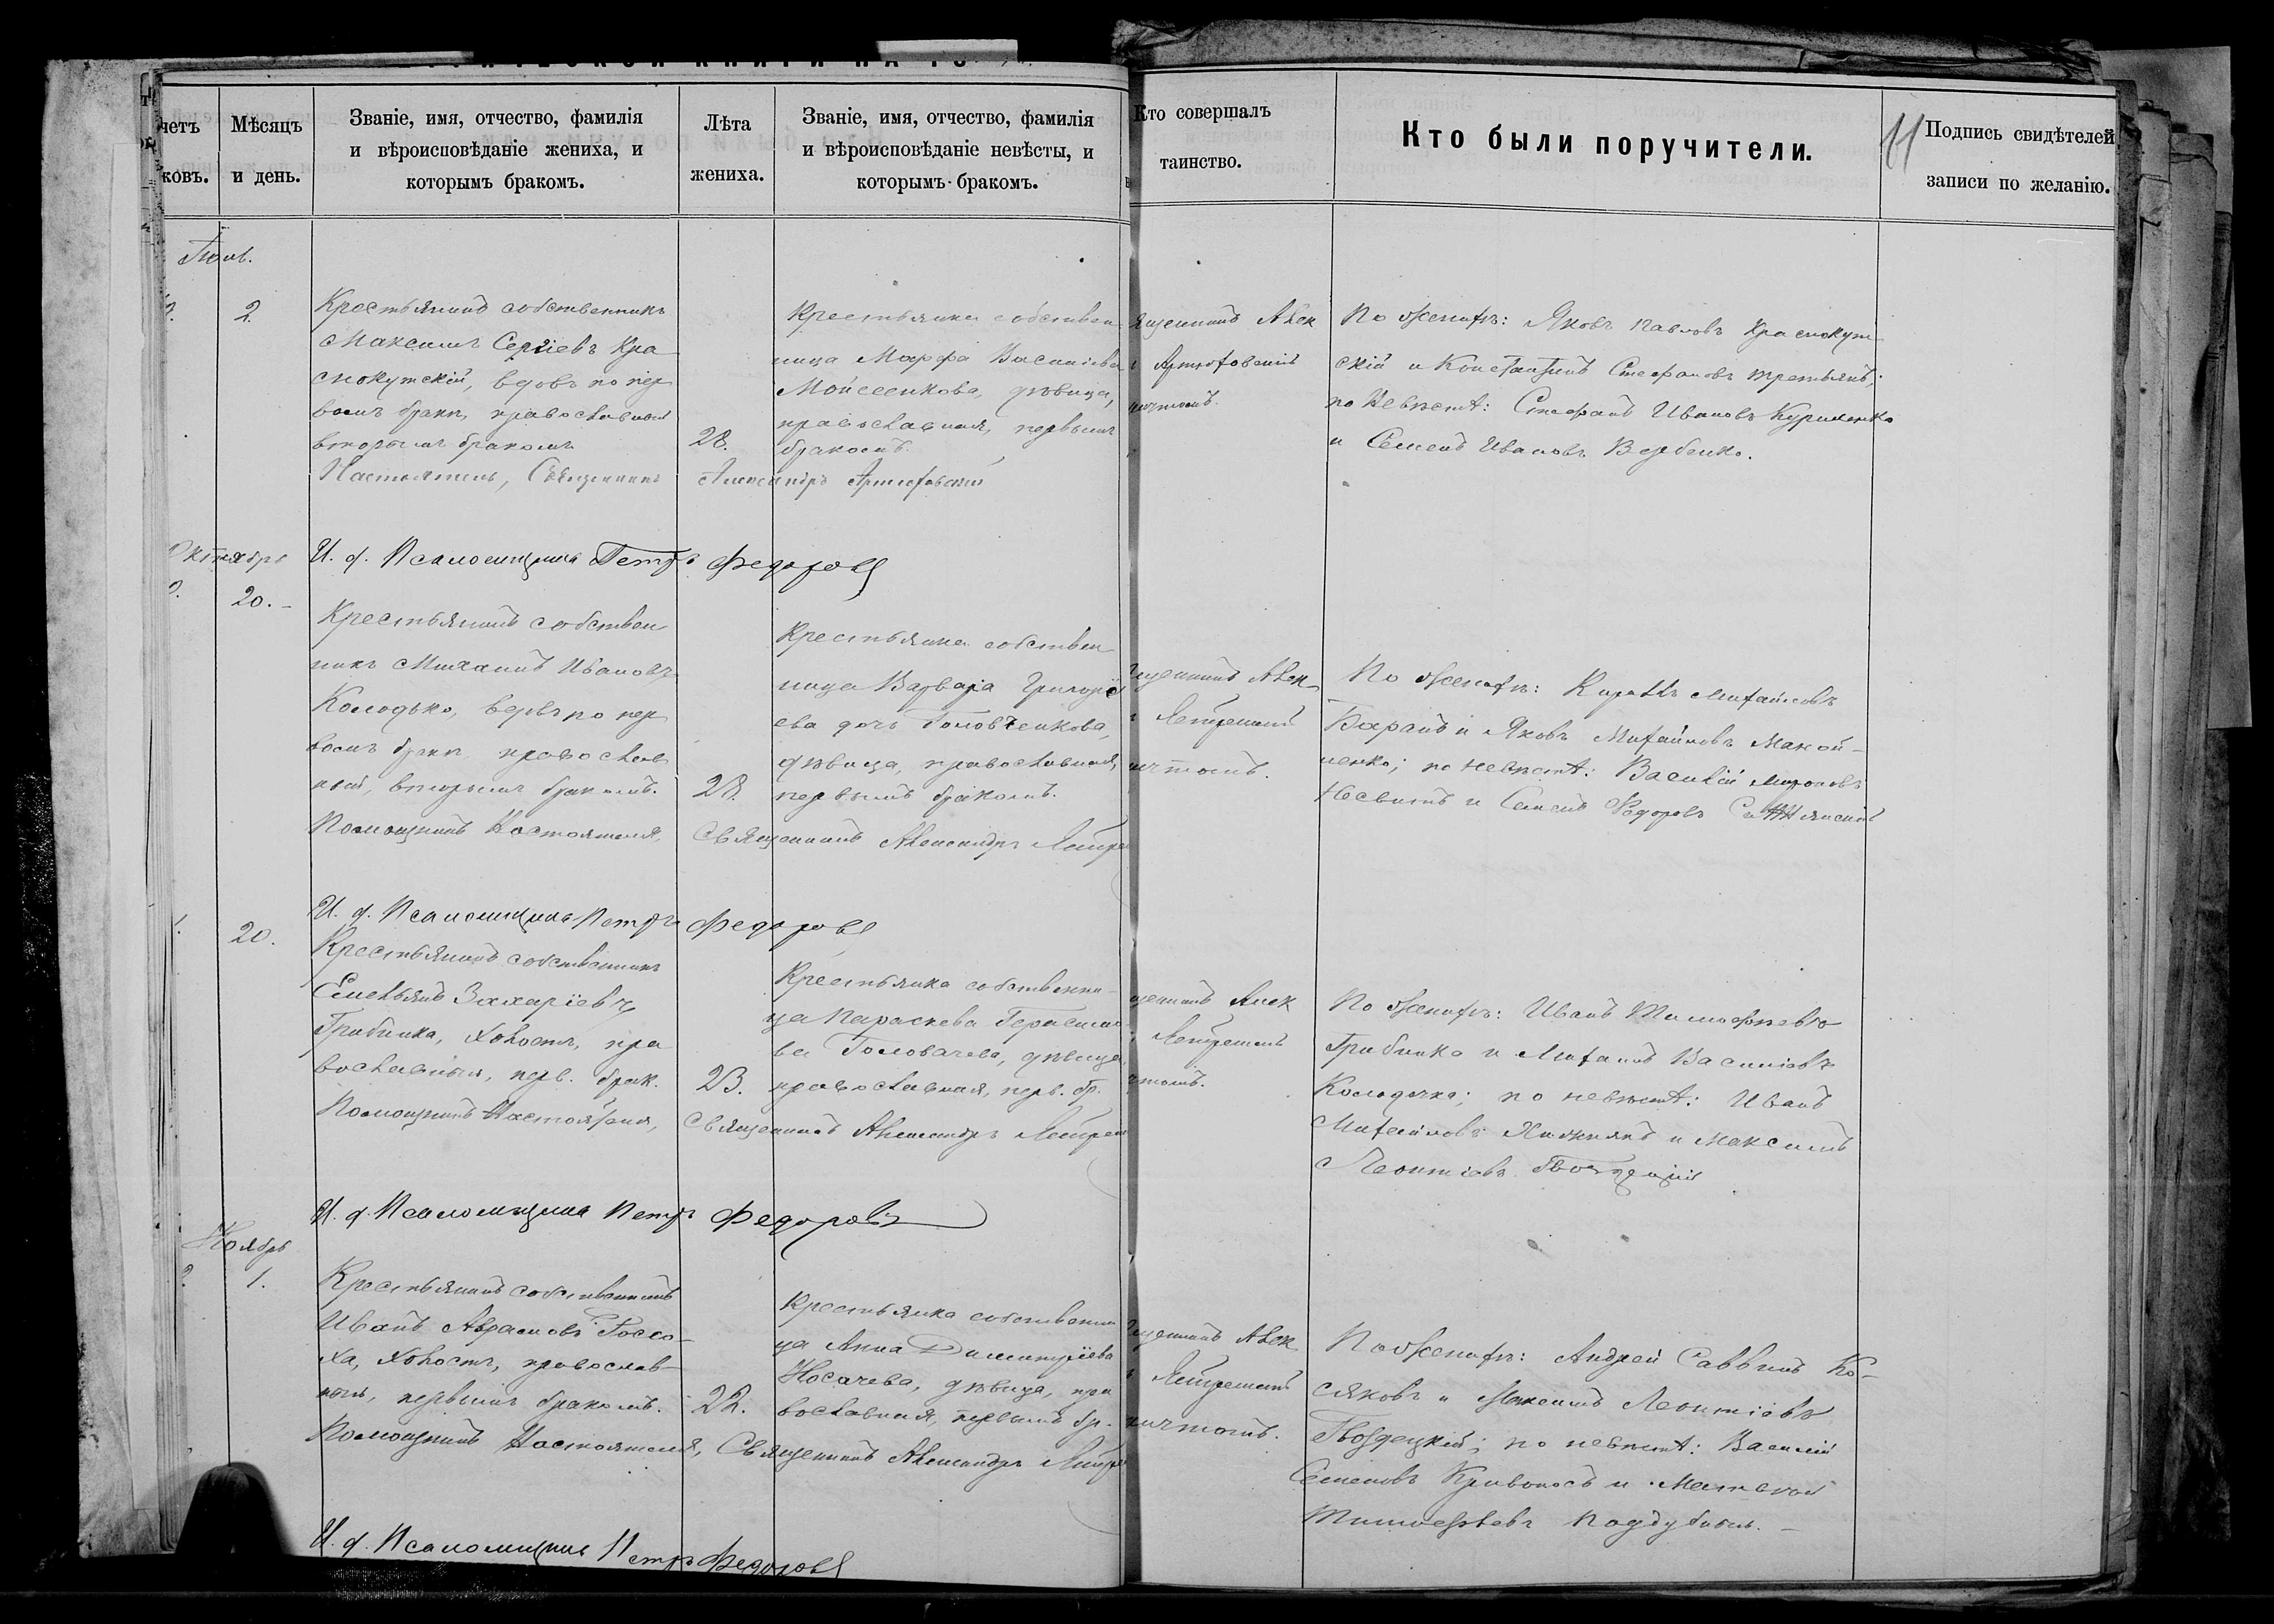 четъ
ковъ.
Мѣсяцъ
и день.
Званіе, имя, отчество, фамилія
и вѣроисповѣданіе жениха, и
которымъ бракомъ.
Лѣта
жениха.
Званіе, имя, отчество, фамилія
и вѣроисповѣданіе невѣсты, и
которымъ бракомъ.
Кто совершалъ
таинство.
Кто были поручители.
11
Подпись свидѣтелей
записи по желанію.
2.
Крестьянинъ собственникъ
Максимъ Сергіевъ Кра
снокутскій, вдовъ по пер
вомъ бракѣ, православный
вторымъ бракомъ
28.
Крестьянка собствен
ница Марфа Василіева
Мойсеенкова, дѣвица,
православная, первымъ
бракомъ.
Настоятель, Священникъ Александръ
ященникъ Алек
По женихѣ: Яковъ Павловъ Краснокут
скій и Константинъ Стефановъ Третьякъ;
по невѣстѣ: Стефанъ Ивановъ Куриленко
и Семенъ Ивановъ Вербенко.
И. д. Псаломщика Петръ Федоровъ
Октябрь
20.-
Крестьянинъ собствен
никъ Михаилъ Ивановъ
Колодько, вдовъ по пер
вомъ бракѣ, православ
ный, вторымъ бракомъ.
28.
Крестьянка собствен
ница Варвара Григорі
ева дочь Головченкова,
дѣвица, православная,
первымъ бракомъ.
Помощникъ Настоятеля, Священникъ Александръ
щенникъ Алек
По женихѣ: Кириллъ Михайловъ
Баранъ и Яковъ Михайловъ Маной-
ленко; по невѣстѣ: Василій Мироновъ
Несвитъ и Семенъ Федоровъ
И. д. Псаломщика Петръ Федоровъ
20.
Крестьянинъ собственникъ
Емельянъ Захаріевъ
Грибинка, холостъ, пра
вославный, перв. брак.
23.
Крестьянка собственни-
ца Параскева Герасимо
ва Головачева, дѣвица,
православная, перв. бр.
Помощникъ Настоятеля, Священникъ Александръ
щенникъ Алек
По женихѣ: Иванъ Тимофѣевъ
Грибинка и Михаилъ Василіевъ
Колодочка; по невѣстѣ: Иванъ
Михайловъ Хижнякъ и Максимъ
Леонтіевъ Гвоздецкій
И. д. Псаломщика Петръ Федоровъ
Ноябрь
1.
Крестьянинъ собственникъ
Иванъ Авраамовъ Россо-
ха, холостъ, православ-
ный, первымъ бракомъ.
22.
Крестьянка собственни
ца Анна Димитріева
Носачева, дѣвица, пра
вославная, первымъ бр.
Помощникъ Настоятеля, Священникъ Александръ
щенникъ Алек
По женихѣ: Андрей Саввинъ Ко-
сяковъ и Максимъ Леонтіевъ
Гвоздецкій; по невѣстѣ: Василій
Семеновъ Кривоносъ и Матвей
Тимофѣевъ Поддубный. -
И. д. Псаломщика Петръ Федоровъ